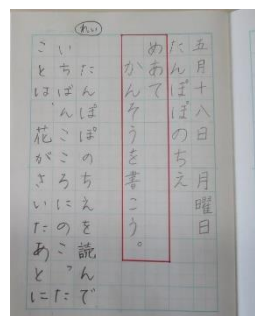 五月十八日 月曜日
たんぽぽのちえ
めあて
かんそうを書こう。
れい
たんぽぽのちえを読んで
いちばんこころにのこった
ことは、花がさいたあとに